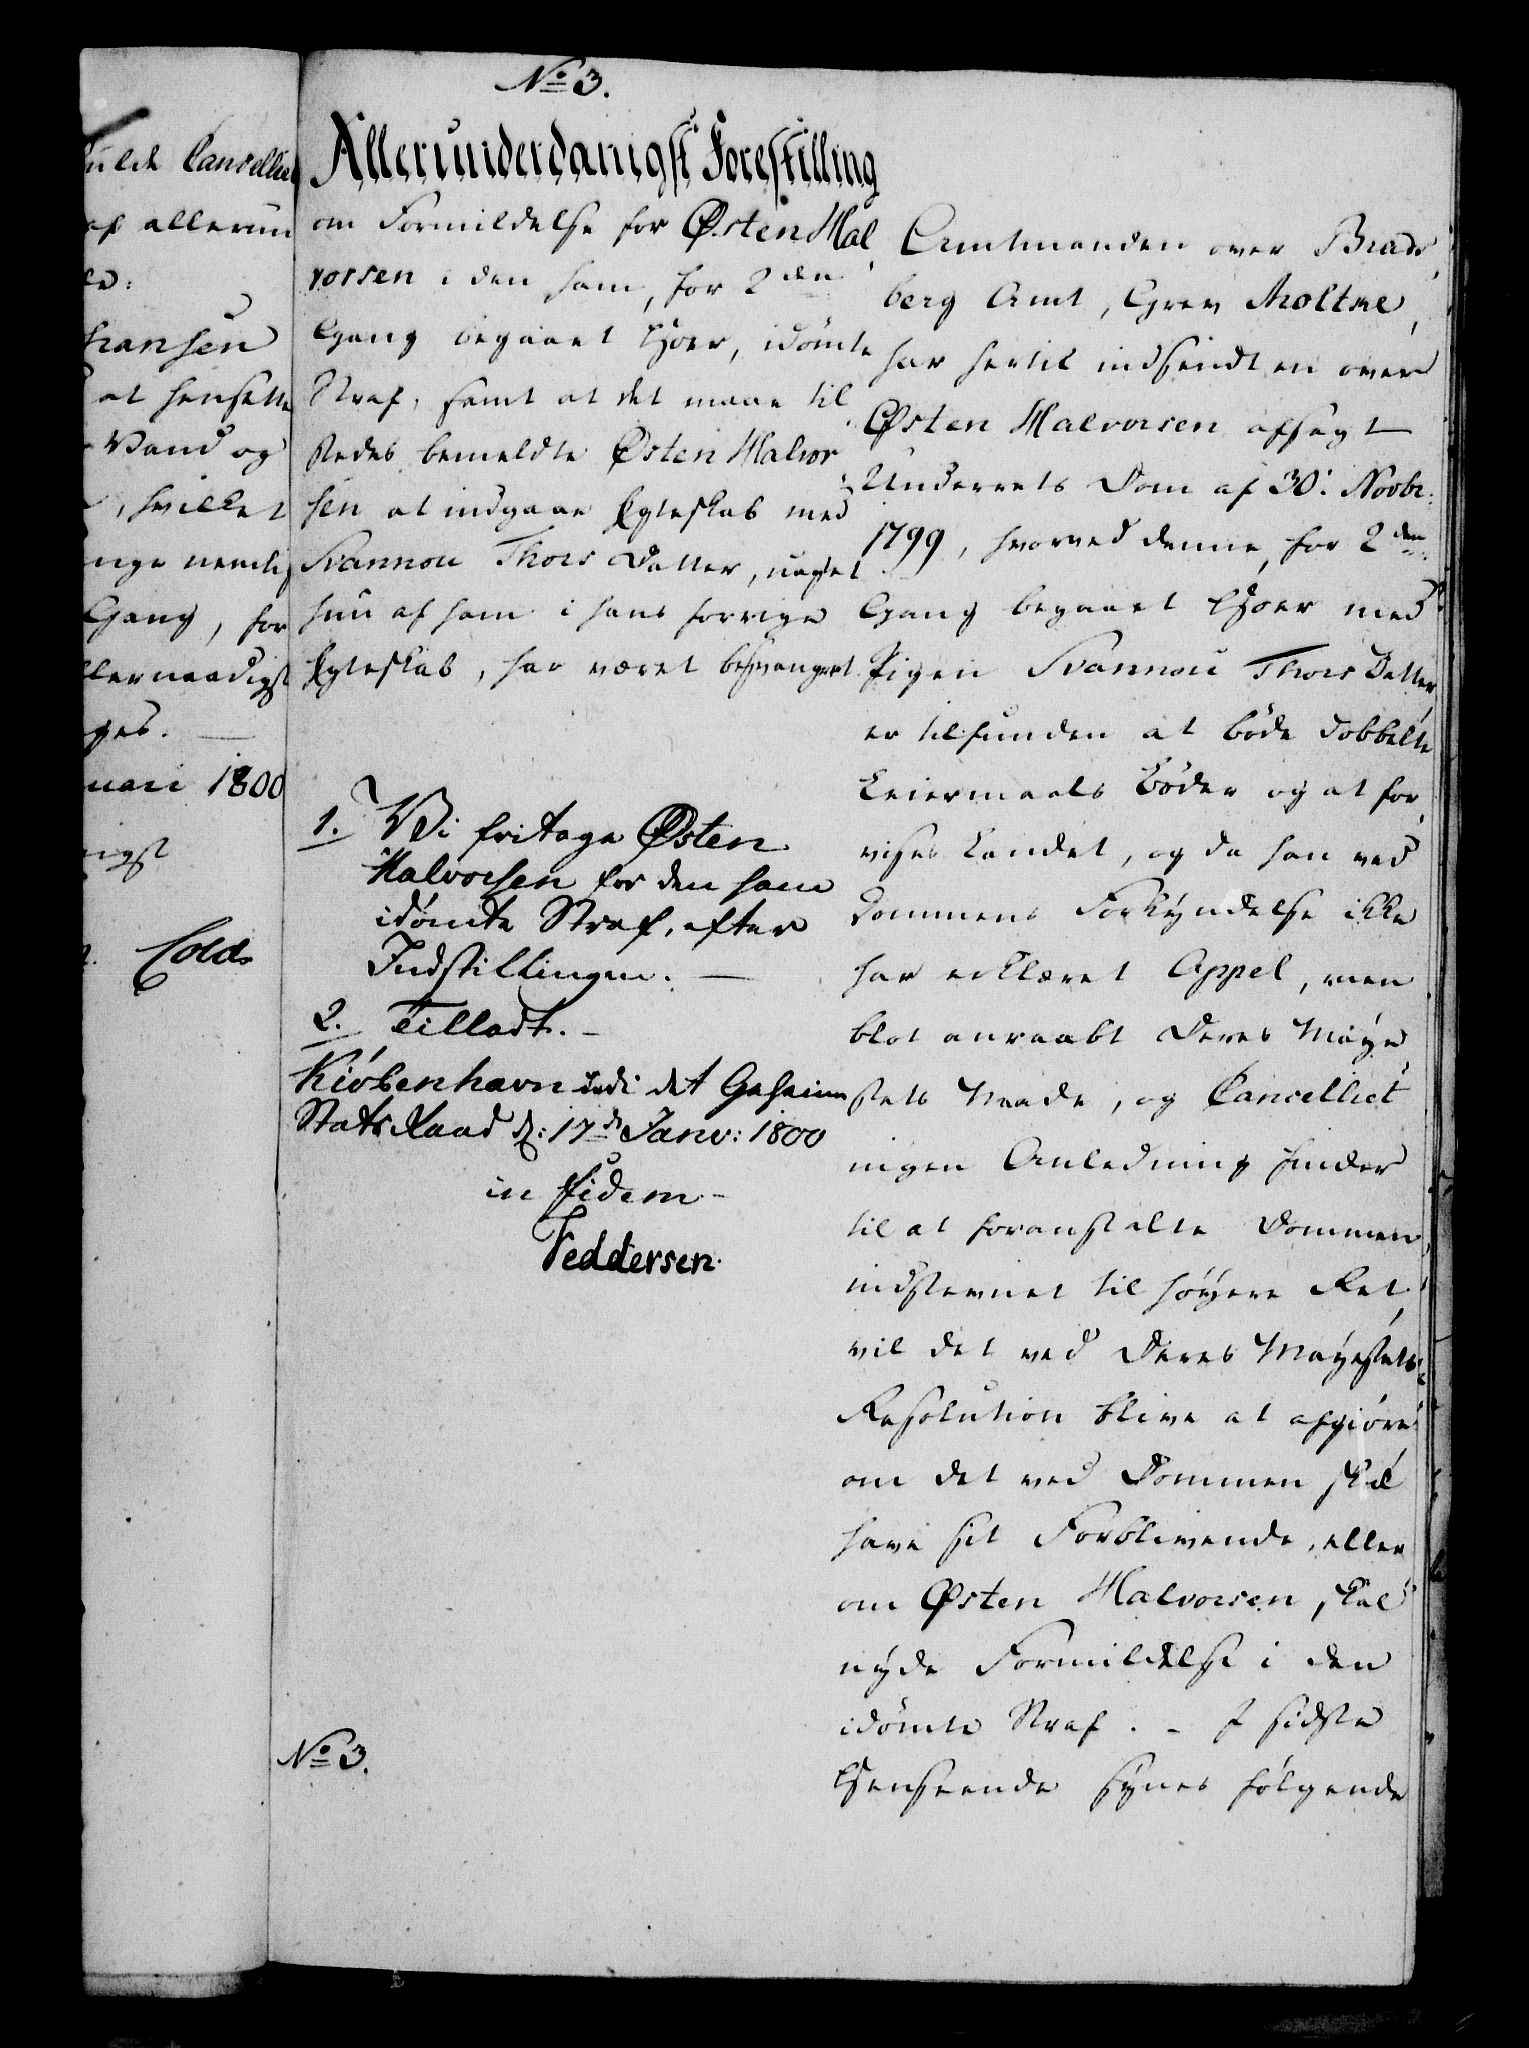 ulde Cancellie
af allerun
le:
hansen
at hensette
Vand og
, hvilket
nge nemlig
Gang, for
llernaadigst
ges. —
uari 1800
igst
Colds
No 3.
Allerunderdanigst Forestilling
om Formildelse for Østen Hal
vorsen i den ham, for 2den
Gang begaaet Hoer, idømte
Straf, samt at det maae til
stedes bemeldte Østen Halvor
sen at indgaae Egteskab med
Svannou Thors Datter, uagtet
hun af ham i hans forrige
Egteskab, har været besvangret.
1. Vi fritage Østen
Halvorsen for den ham
idømte Straf, efter
Indstillingen. —
2. Tilladt. –
Kiøbenhavn udi det Geheime
Stats Raad d: 17de Janv: 1800
in fidem –
Feddersen.
No 3.
Amtmanden over Brads
berg Amt, Grev Moltke,
har hertil indsendt en over
Østen Halvorsen afsagt
Underrets Dom af 30. Novbr.
1799, hvorved denne, for 2den
Gang begaaet Hoer med
Pigen Svannou Thors Datter,
er tilfunden at bøde dobbelte
Leiermaals Bøder og at for
vises Landet, og da han ved
Dommens Forkyndelse ikke
har erklæret Appel, men
blot anraabt Deres Maye
stets Naade, og Cancelliet
ingen Anledning finder
til at foranstalte Dommen
indstevnet til høyere Ret,
vil det ved Deres Mayestets
Resolution blive at afgiøre
om det ved Dommen skal
have sit Forblivende, eller
om Østen Halvorsen skal
nyde Formildelse i den
idømte Straf. – I sidste
Henseende synes følgende